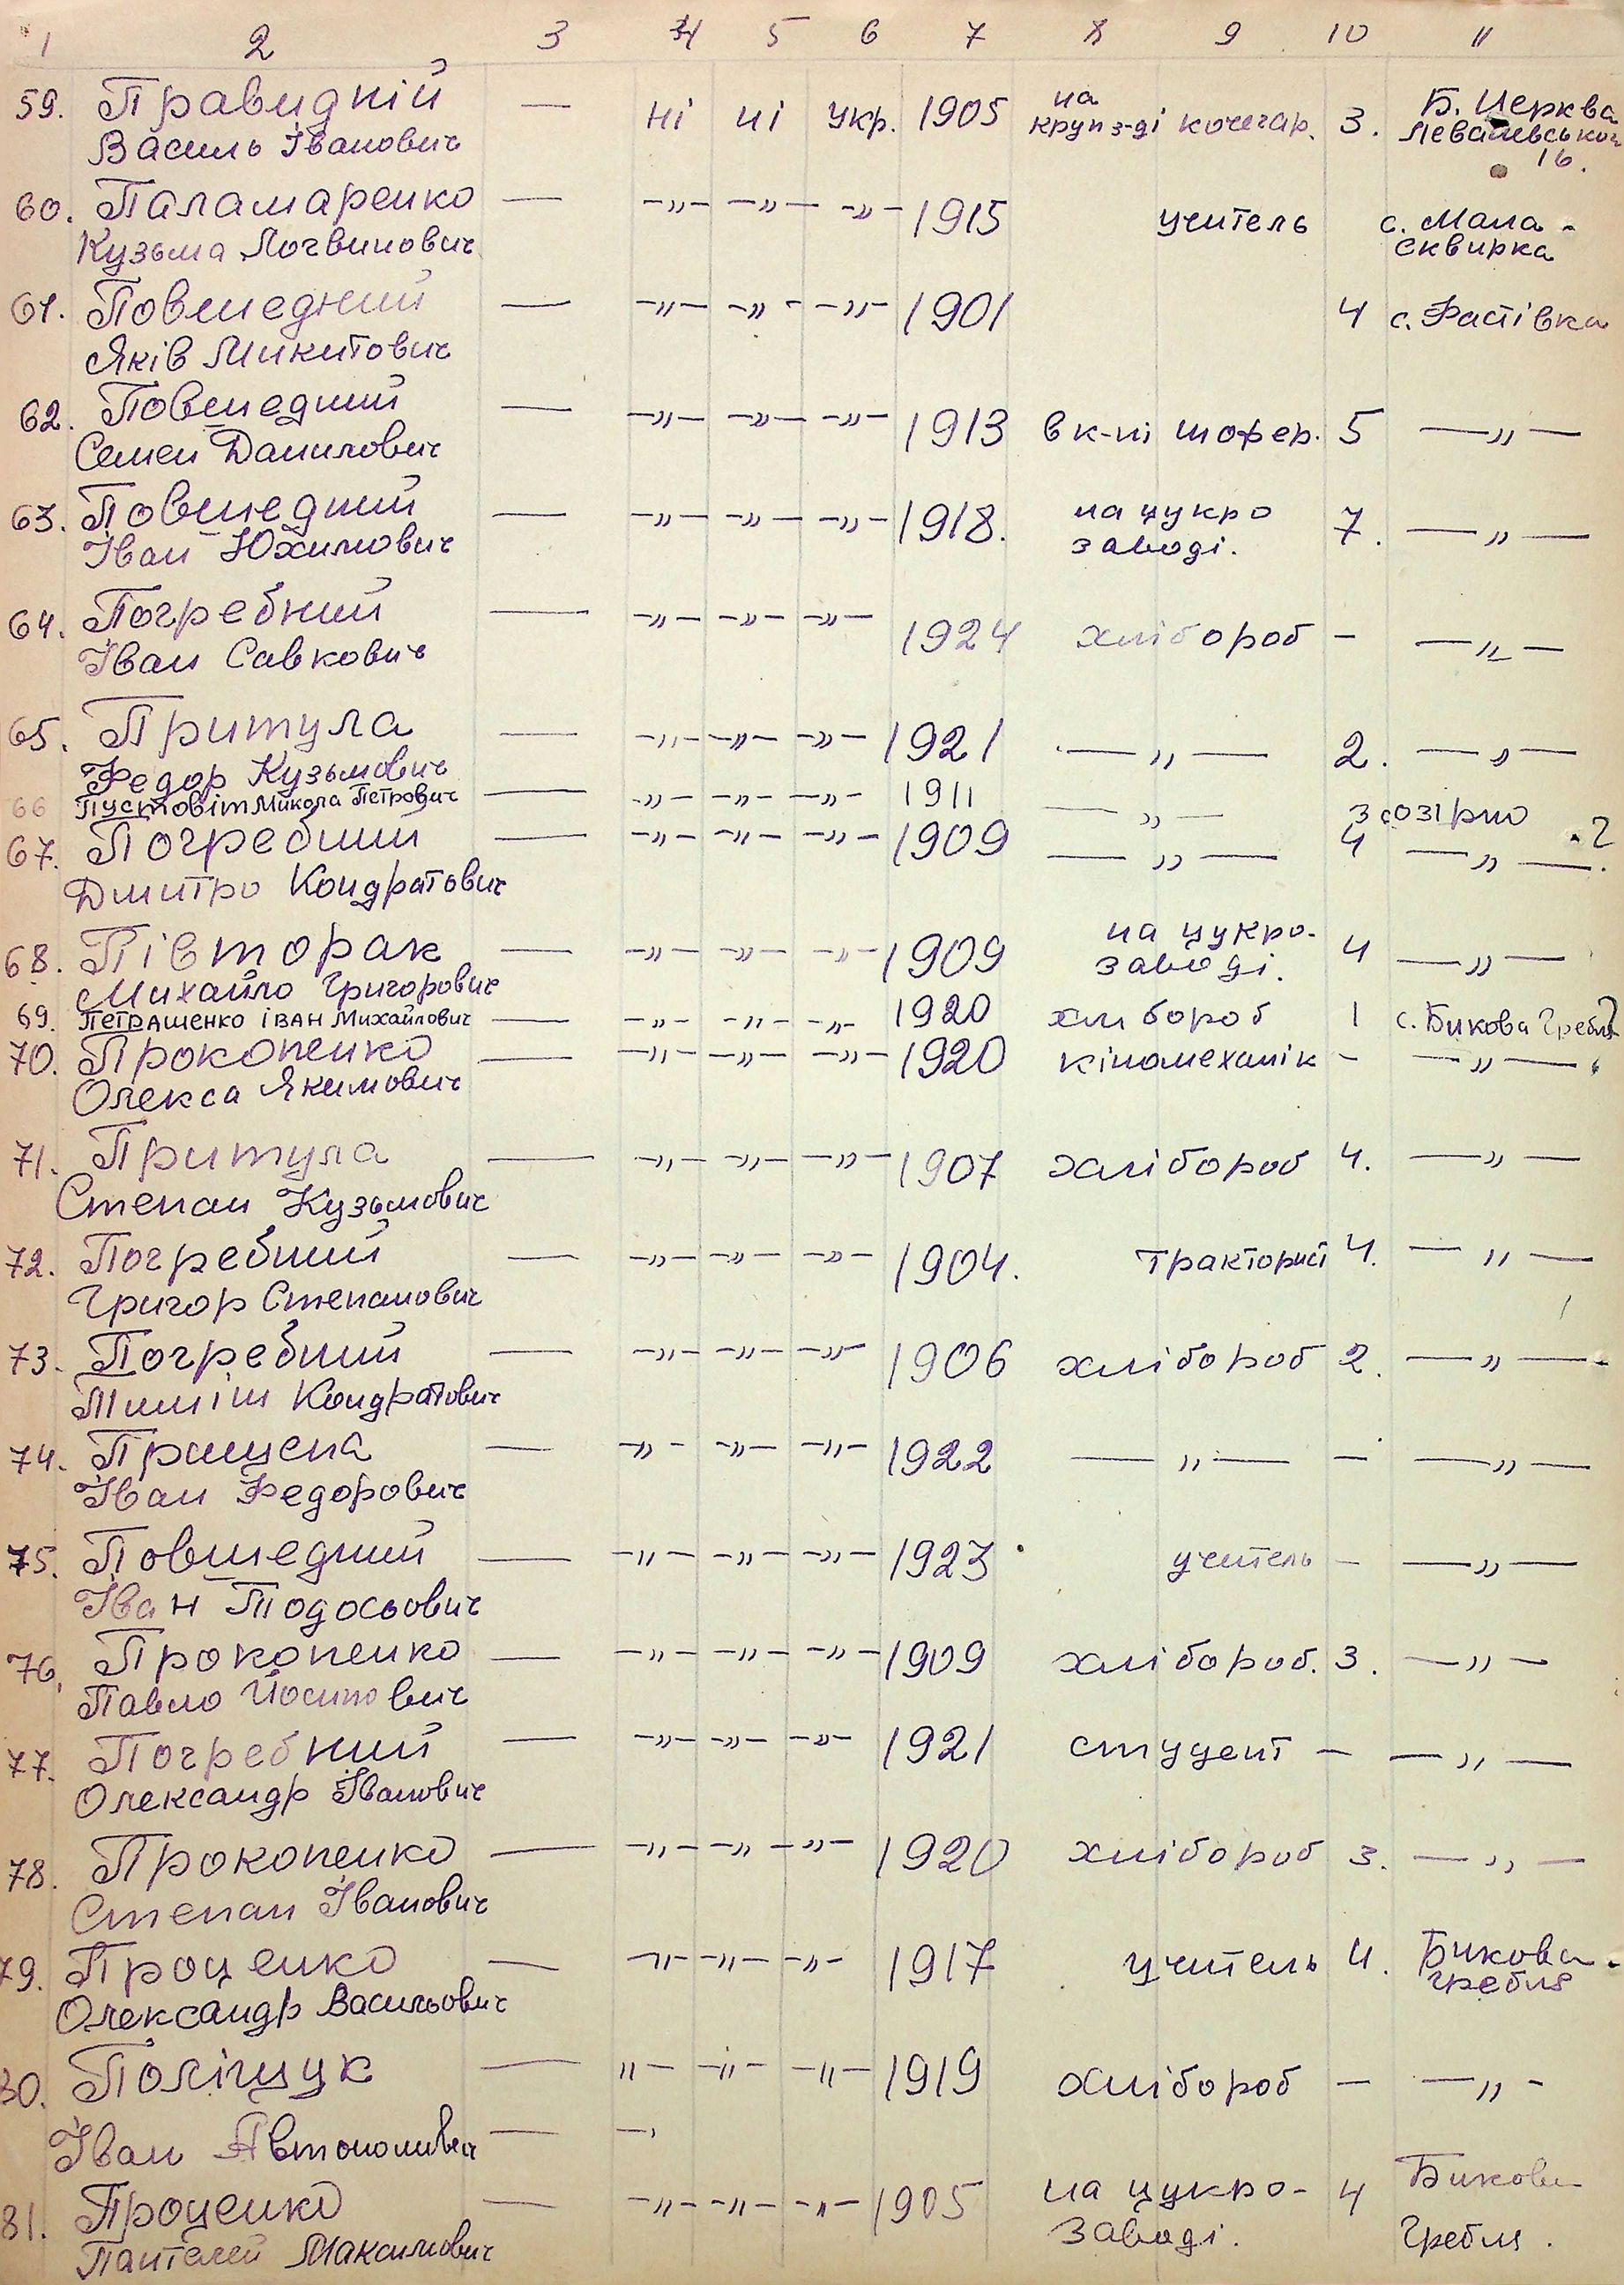 1 2 3 4 5 6 7 8 9 10 11
59. Правидній — ні ні укр. 1905 на круп з-ді кочегар. 3. Б. Церква
Василь Іванович Леваневського
16.
60. Паламаренко — —„— —„— —„— 1915 учитель с. Мала
Кузьма Логвинович Сквирка
61. Повшедний — —„— —„— —„— 1901 4 с. Фастівка
Яків Микитович
62. Повшедний — —„— —„— —„— 1913 в к-пі шофер. 5 —„—
Семен Данилович
63. Повшедний — —„— —„— —„— 1918. на цукро 7. —„—
Іван Юхимович заводі.
64. Погребний — —„— —„— —„— 1924 хлібороб — —„—
Іван Савкович
65. Притула — —„— —„— —„— 1921 —„— 2. —„—
Федор Кузьмович
66 Пустовіт Микола Петрович — —„— —„— —„— 1911 —„— 3 с Озірно
67. Погребний — —„— —„— —„— 1909 —„— 4 —„— . ?
Дмитро Кондратович
68. Півторак — —„— —„— —„— 1909 на цукро- 4 —„—
Михайло Григорович заводі.
69. Петрашенко Іван Михайлович — —„— —„— —„— 1920 хлібороб 1 с. Бикова Гребля
70. Прокопенко — —„— —„— —„— 1920 кіномеханік — —„—
Олекса Якимович
71. Притула — —„— —„— —„— 1907 хлібороб 4. —„—
Степан Кузьмович
72. Погребний — —„— —„— —„— 1904. тракторист 4. —„—
Григор Степанович
73. Погребний — —„— —„— —„— 1906 хлібороб 2. —„—
Кондратович
74. Прищепа — —„— —„— —„— 1922 —„— — —„—
Іван Федорович
75. Повшедний — —„— —„— —„— 1923 учитель — —„—
Іван Тодосьович
76. Прокопенко — —„— —„— —„— 1909 хлібороб. 3. —„—
Павло Йосипович
77. Погребний — —„— —„— —„— 1921 студент — —„—
Олександр Іванович
78. Прокопенко — —„— —„— —„— 1920 хлібороб 3. —„—
Степан Іванович
79. Проценко — —„— —„— —„— 1917 учитель 4. Бикова
Олександр Васильович Гребля
80. Поліщук — „— —„— —„— 1919 хлібороб — —„—
Іван Автономович — —
81. Проценко — —„— —„— —„— 1905 на цукро- 4 Бикова
Пантелей Максимович заводі. Гребля.